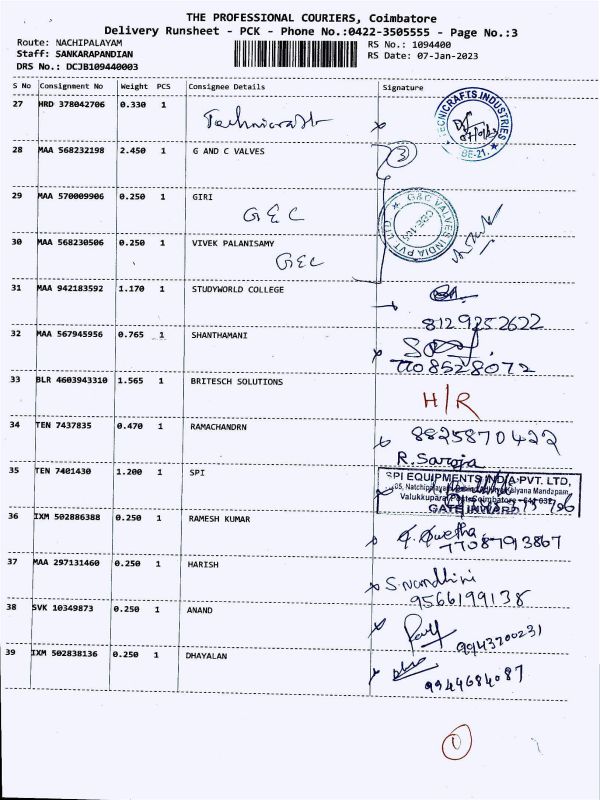 THE PROFESSIONAL COURIERS, Coimbatore
Delivery Runsheet - PCK - Phone No.:0422-3505555 - Page No.:3
Route: NACHIPALAYAM
RS No.: 1094400
Staff: SANKARAPANDIAN
RS Date: 07-Jan-2023
DRS No.: DCJB109440003
S No Consignment No Weight PCS Consignee Details Signature
27 HRD 378042706 0.330 1
TECNICRAFTS INDUSTRIES
28 MAA 568232198 2.450 1 G AND C VALVES
3
29 MAA 570009906 0.250 1 GIRI
GEC
G&C VALVES INDIA PVT LTD
30 MAA 568230506 0.250 1 VIVEK PALANISAMY
GEC
31 MAA 942183592 1.170 1 STUDYWORLD COLLEGE
8129252622
32 MAA 567945956 0.765 1 SHANTHAMANI
7708528072
33 BLR 4603943310 1.565 1 BRITESCH SOLUTIONS
H/R
34 TEN 7437835 0.470 1 RAMACHANDRN
8825870422
R. Saroja
35 TEN 7401430 1.200 1 SPI
SPI EQUIPMENTS INDIA PVT. LTD,
Kalyana Mandapam,
Valukkuparai Post, Coimbatore - 641 032
GATE INWARD
36 IXM 502886388 0.250 1 RAMESH KUMAR
7708793867
37 MAA 297131460 0.250 1 HARISH
S.Nandhini
9566199138
38 SVK 10349873 0.250 1 ANAND
9943700231
39 IXM 502838136 0.250 1 DHAYALAN
9944684087
1